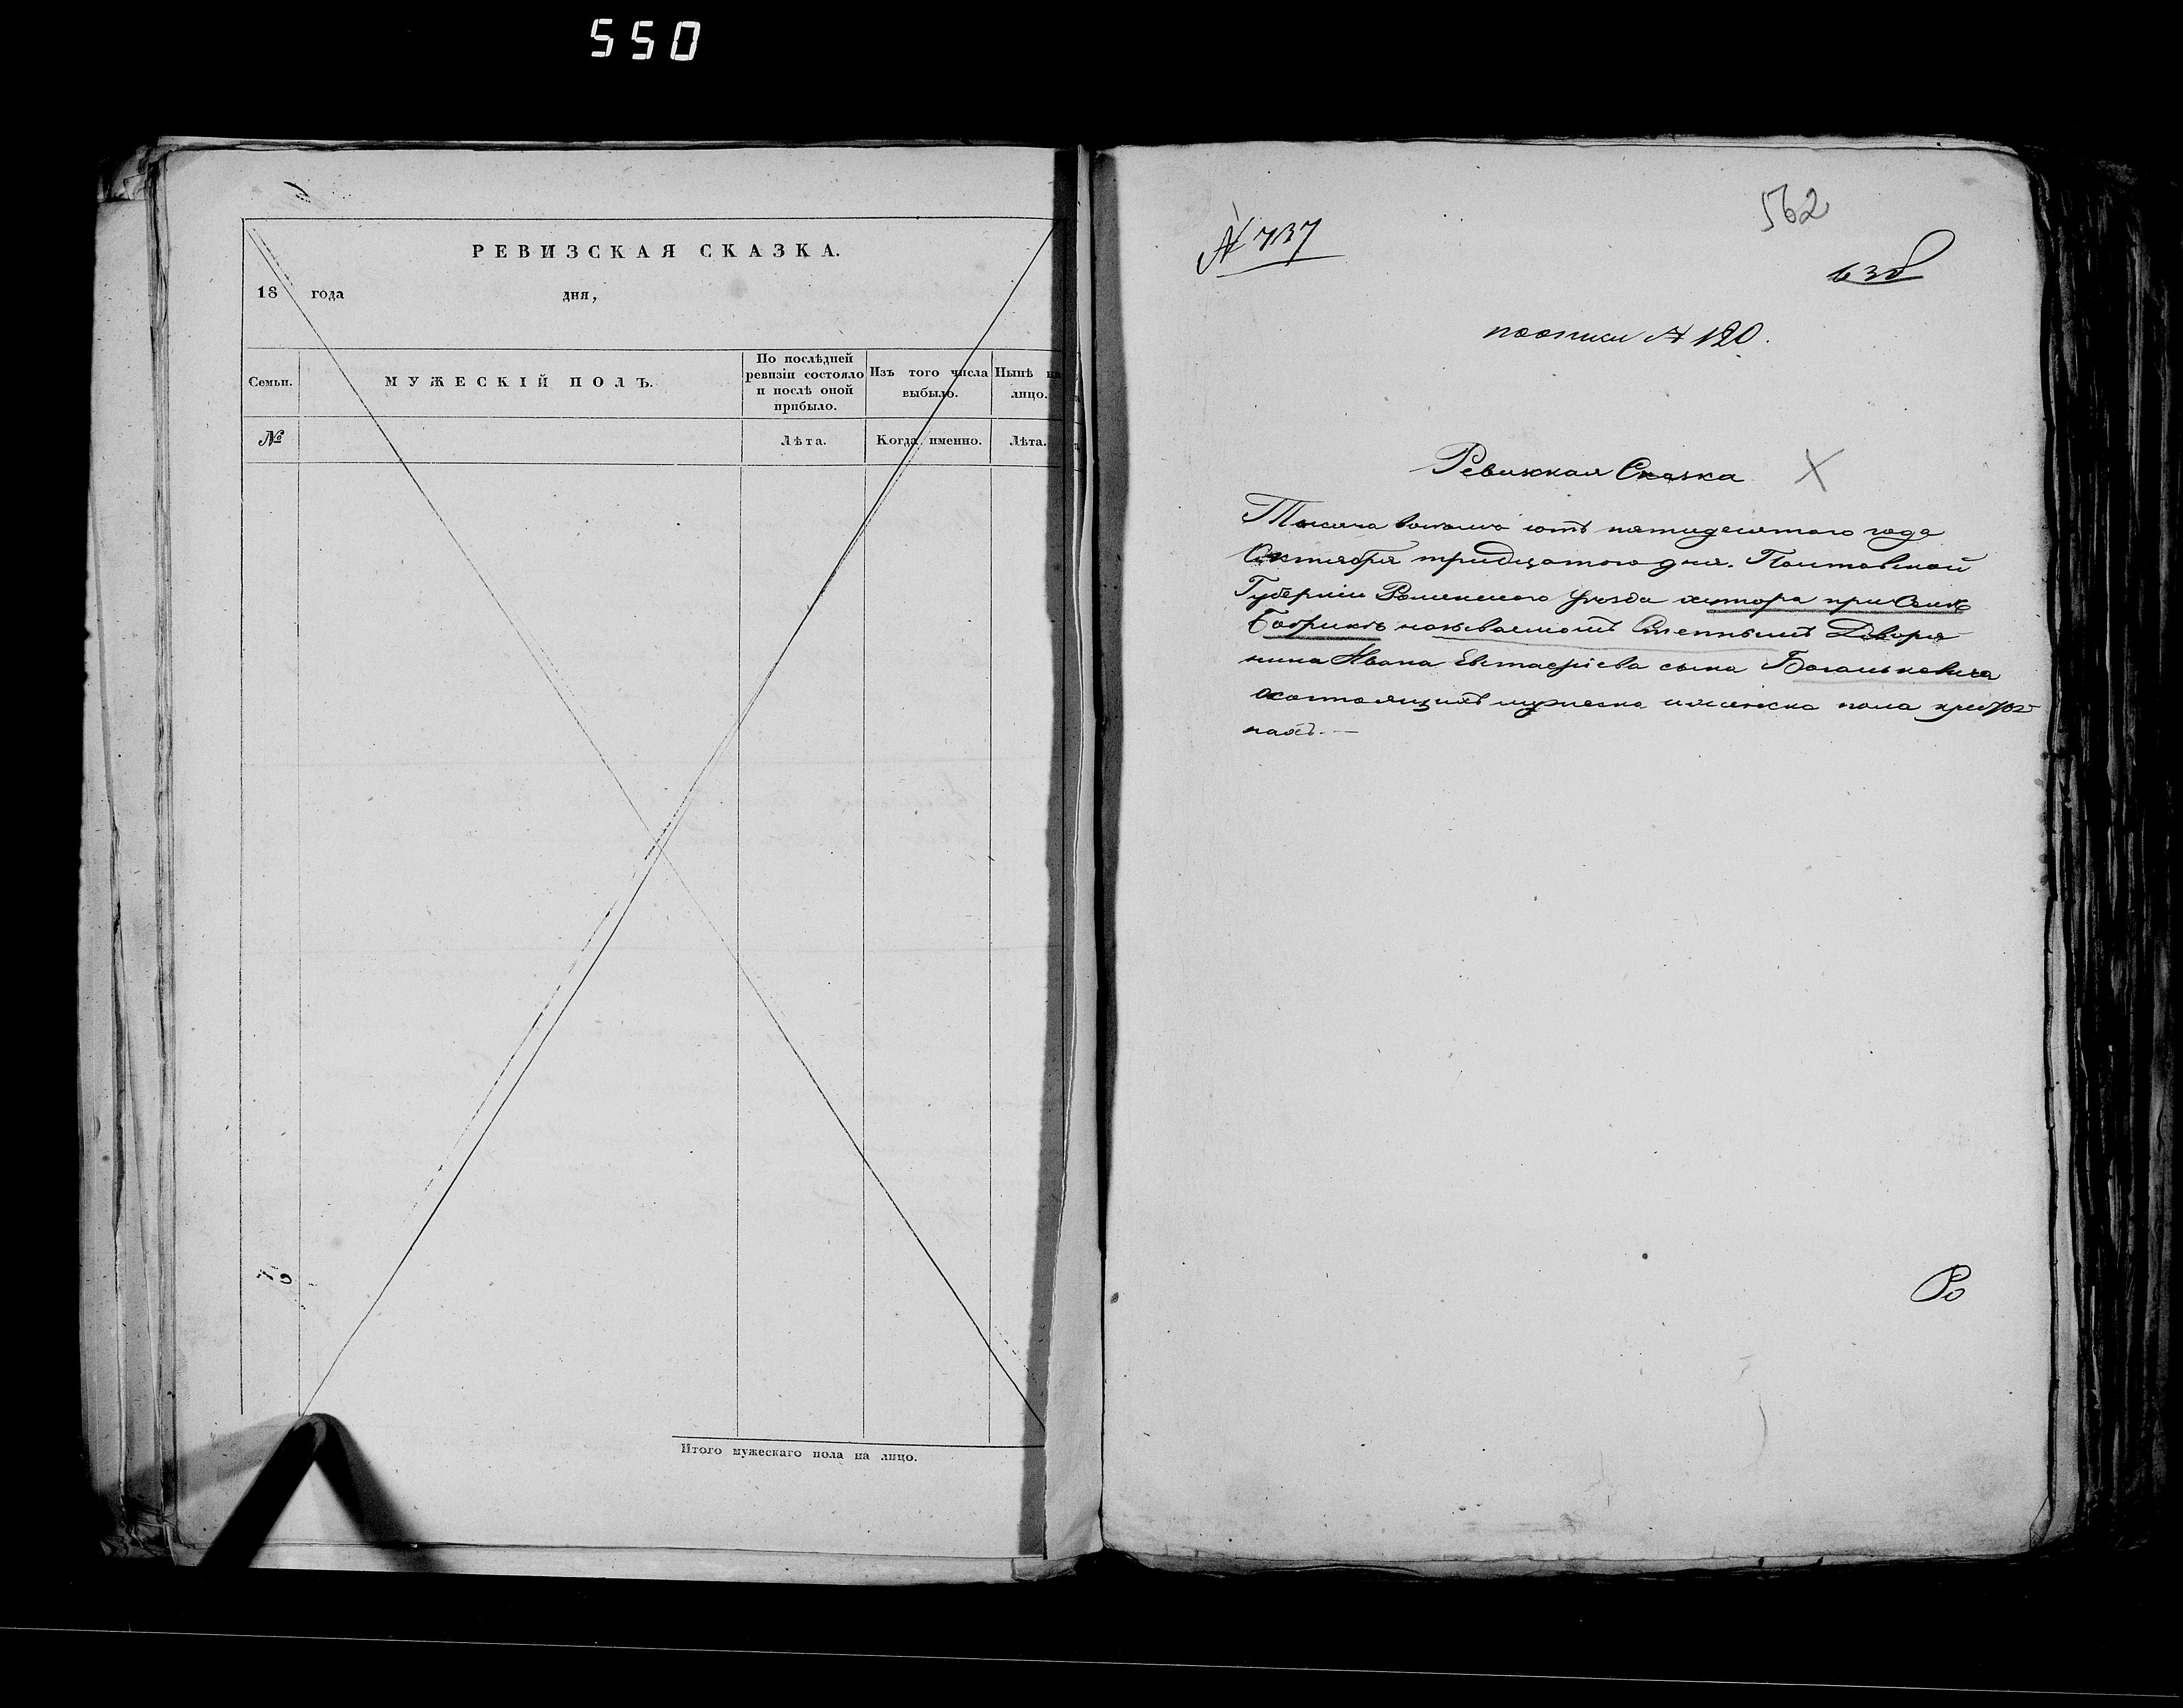 550
РЕВИЗСКАЯ СКАЗКА.
18 года дня,
Семьи.
МУЖЕСКІЙ ПОЛЪ.
По послѣдней ревизіи состояло и послѣ оной прибыло.
Изъ того числа выбыло.
Нынѣ на лицо.
№
Лѣта.
Когда именно.
Лѣта.
Итого мужескаго пола на лицо.
№ 737
562
по описи № 120.
Ревизкая Сказка
Тысяча восемь сотъ пятидесятого года
Октября тридцатого дня. Полтавской
Губерніи Роменского уѣзда хутора при Селѣ
Бобрикѣ называемомъ Степнымъ Дворя
нина Ивана Евстафіева сына
о состоящихъ мужеска и женска пола крестья
нахъ. —
Ро